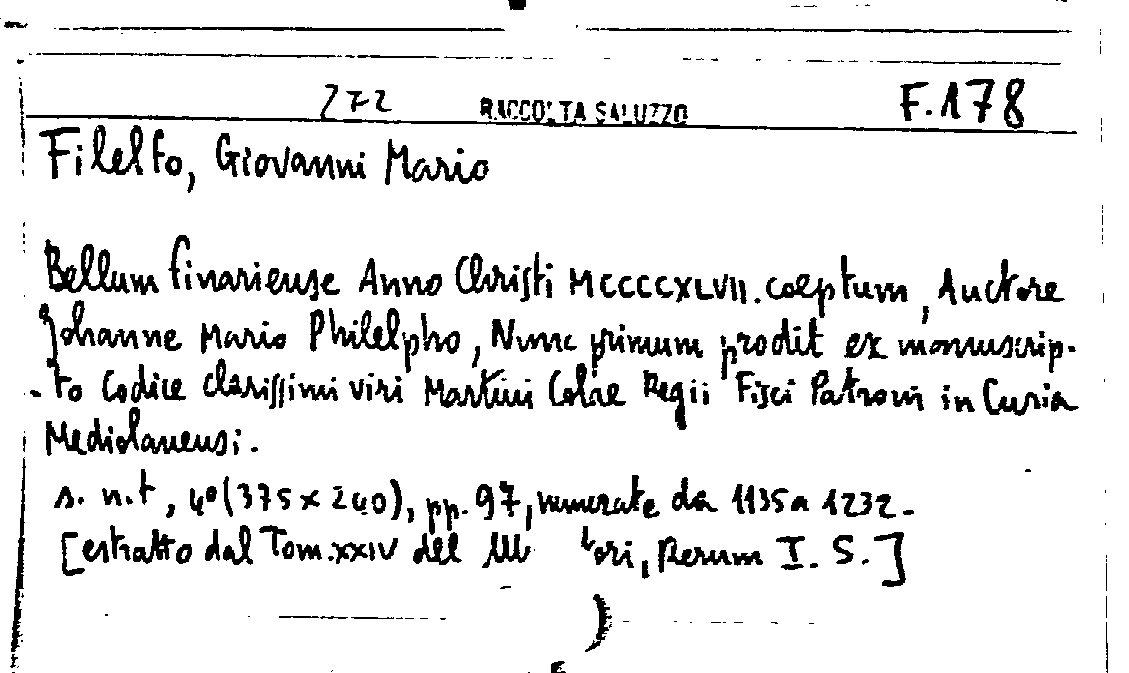 272 RACCOLTA SALUZZO F.178
Filelfo, Giovanni Mario
Bellum finariense Anno Christi MCCCCXLVII. coeptum, Auctore
Johanne Mario Philelpho, Nunc primum prodit ex manuscrip-
-to Codice clarissimi viri Martini Colae Regii Fisci Patroni in Curia
Mediolanensi.
s. n. t, 4º (375 x 240), pp. 97, numerate da 1135 a 1232.
[estratto dal Tom. XXIV del tori, Rerum I. S.]